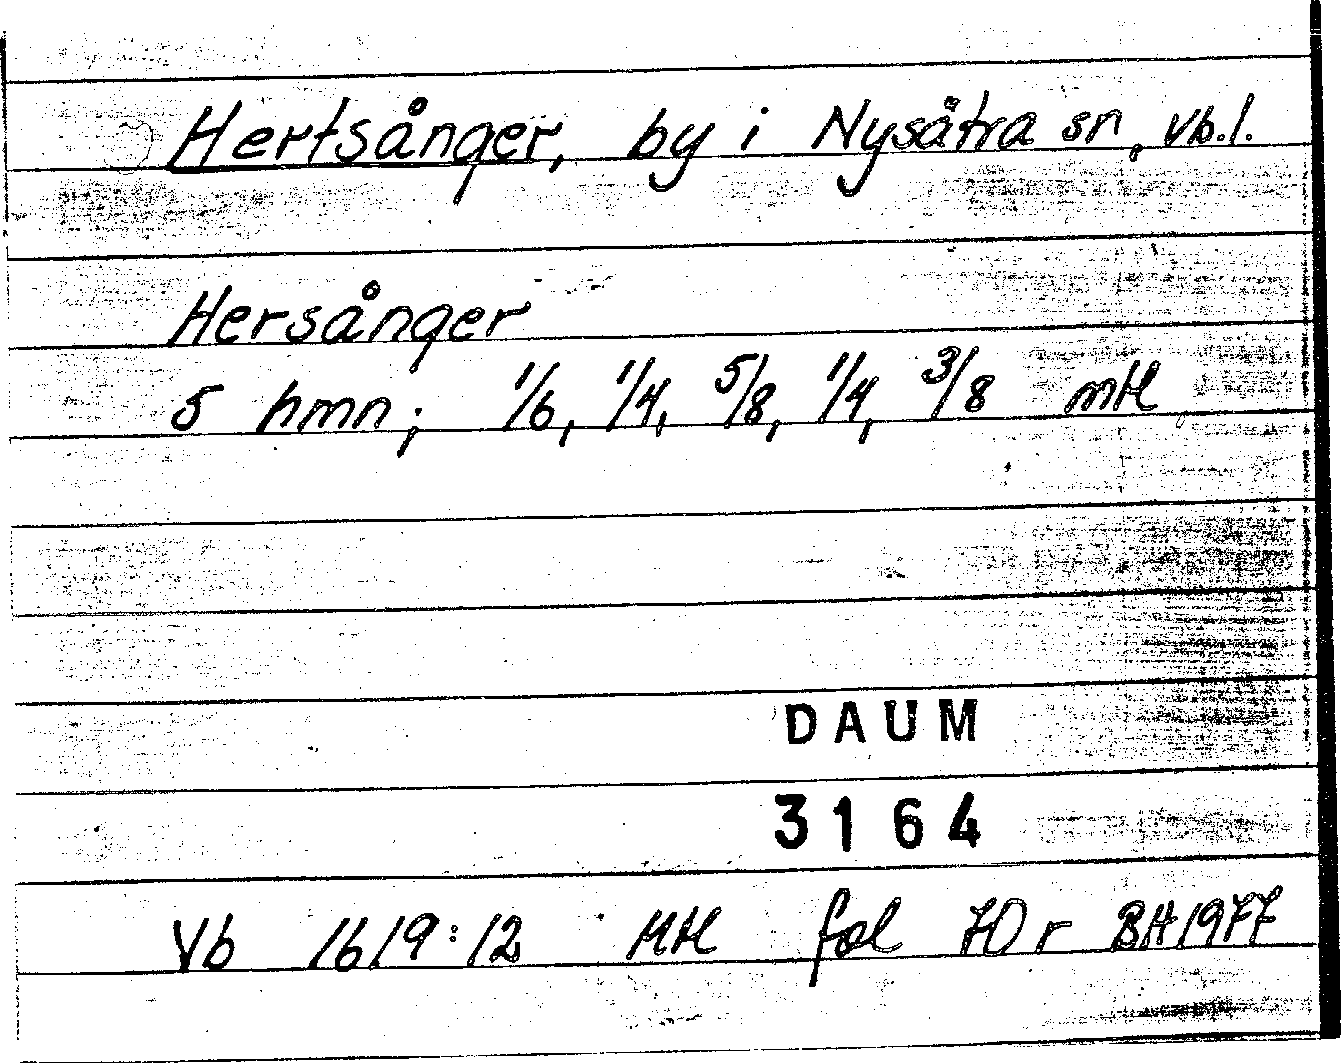 Hertsånger, by i Nysätra sn, Vb.l.
Hersånger
5 hmn; 1/6, 1/4, 5/8, 1/4, 3/8 mtl
DAUM
3164
Vb 1619:12 Mtl fol 70 r BH 1977